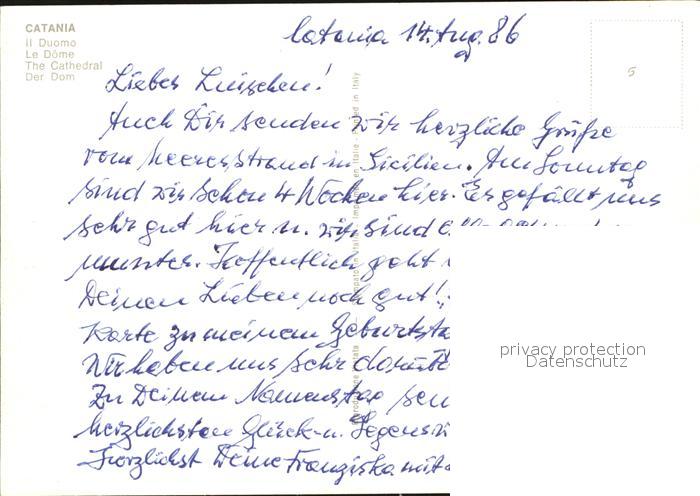 CATANIA
Il Duomo
Le Dôme
The Cathedral
Der Dom
Catania 14. Aug. 86
5
Liebes Luischen!
Auch Dir senden wir herzliche Grüße
vom Meeresstrand in Sicilien. Am Sonntag
sind wir schon 4 Wochen hier. Es gefällt uns
sehr gut hier u. wir sind
munter. Hoffentlich geht
Deinen Lieben noch gut!
Karte zu meinem Geburtsta
Wir haben uns sehr darüb
Zu Deinem Namenstag sen
herzlichsten Glück- u. Segens
Herzlichst Deine Franziska mit
privacy protection
Datenschutz